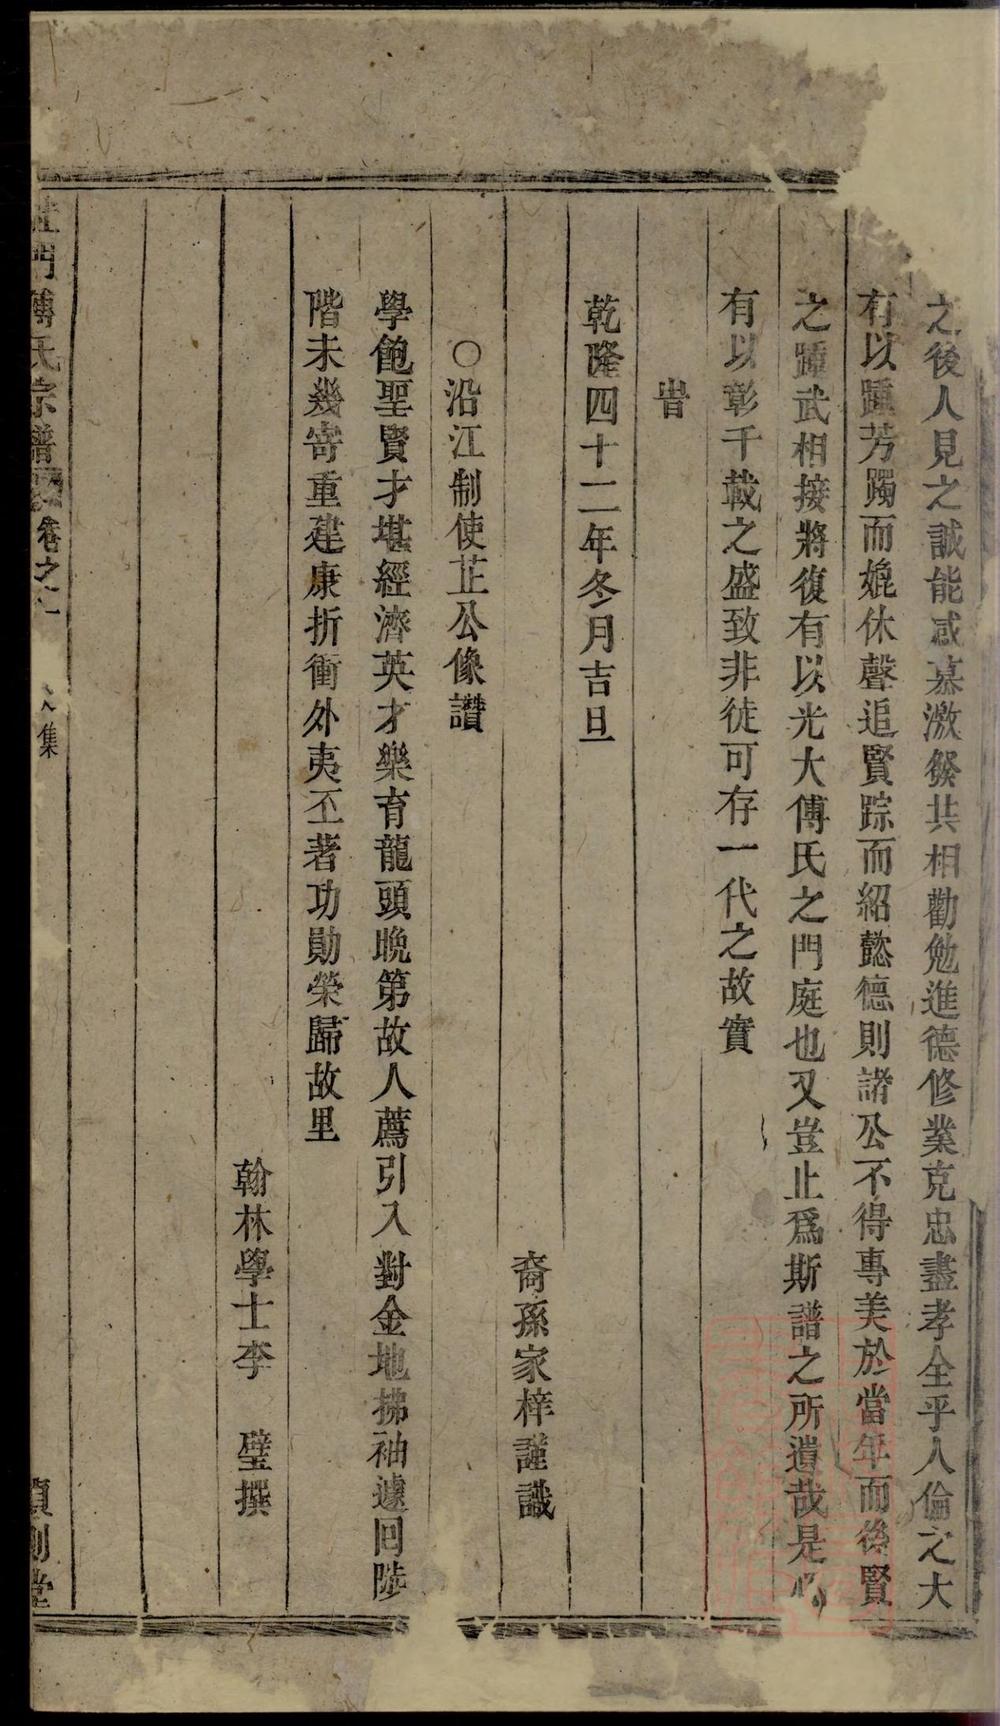 之後人見之誠能感慕激發共相勸勉進德修業克忠盡孝全乎人倫之大
有以踵芳躅而媲休聲追賢踪而紹懿德則諸公不得專美於當年而後賢
之踵武相接將復有以光大傅氏之門庭也又豈止爲斯譜之所遺哉是
有以彰千載之盛致非徒可存一代之故實
旹
乾隆四十二年冬月吉旦
裔孫家梓謹識
○沿江制使芷公像讚
學飽聖賢才堪經濟英才樂育龍頭晩第故人薦引入對金地拂袖遽回陟
階未幾寄重建康折衝外夷丕著功勛榮歸故里
翰林學士李 璧撰
門傅氏宗譜 卷之 集 堂